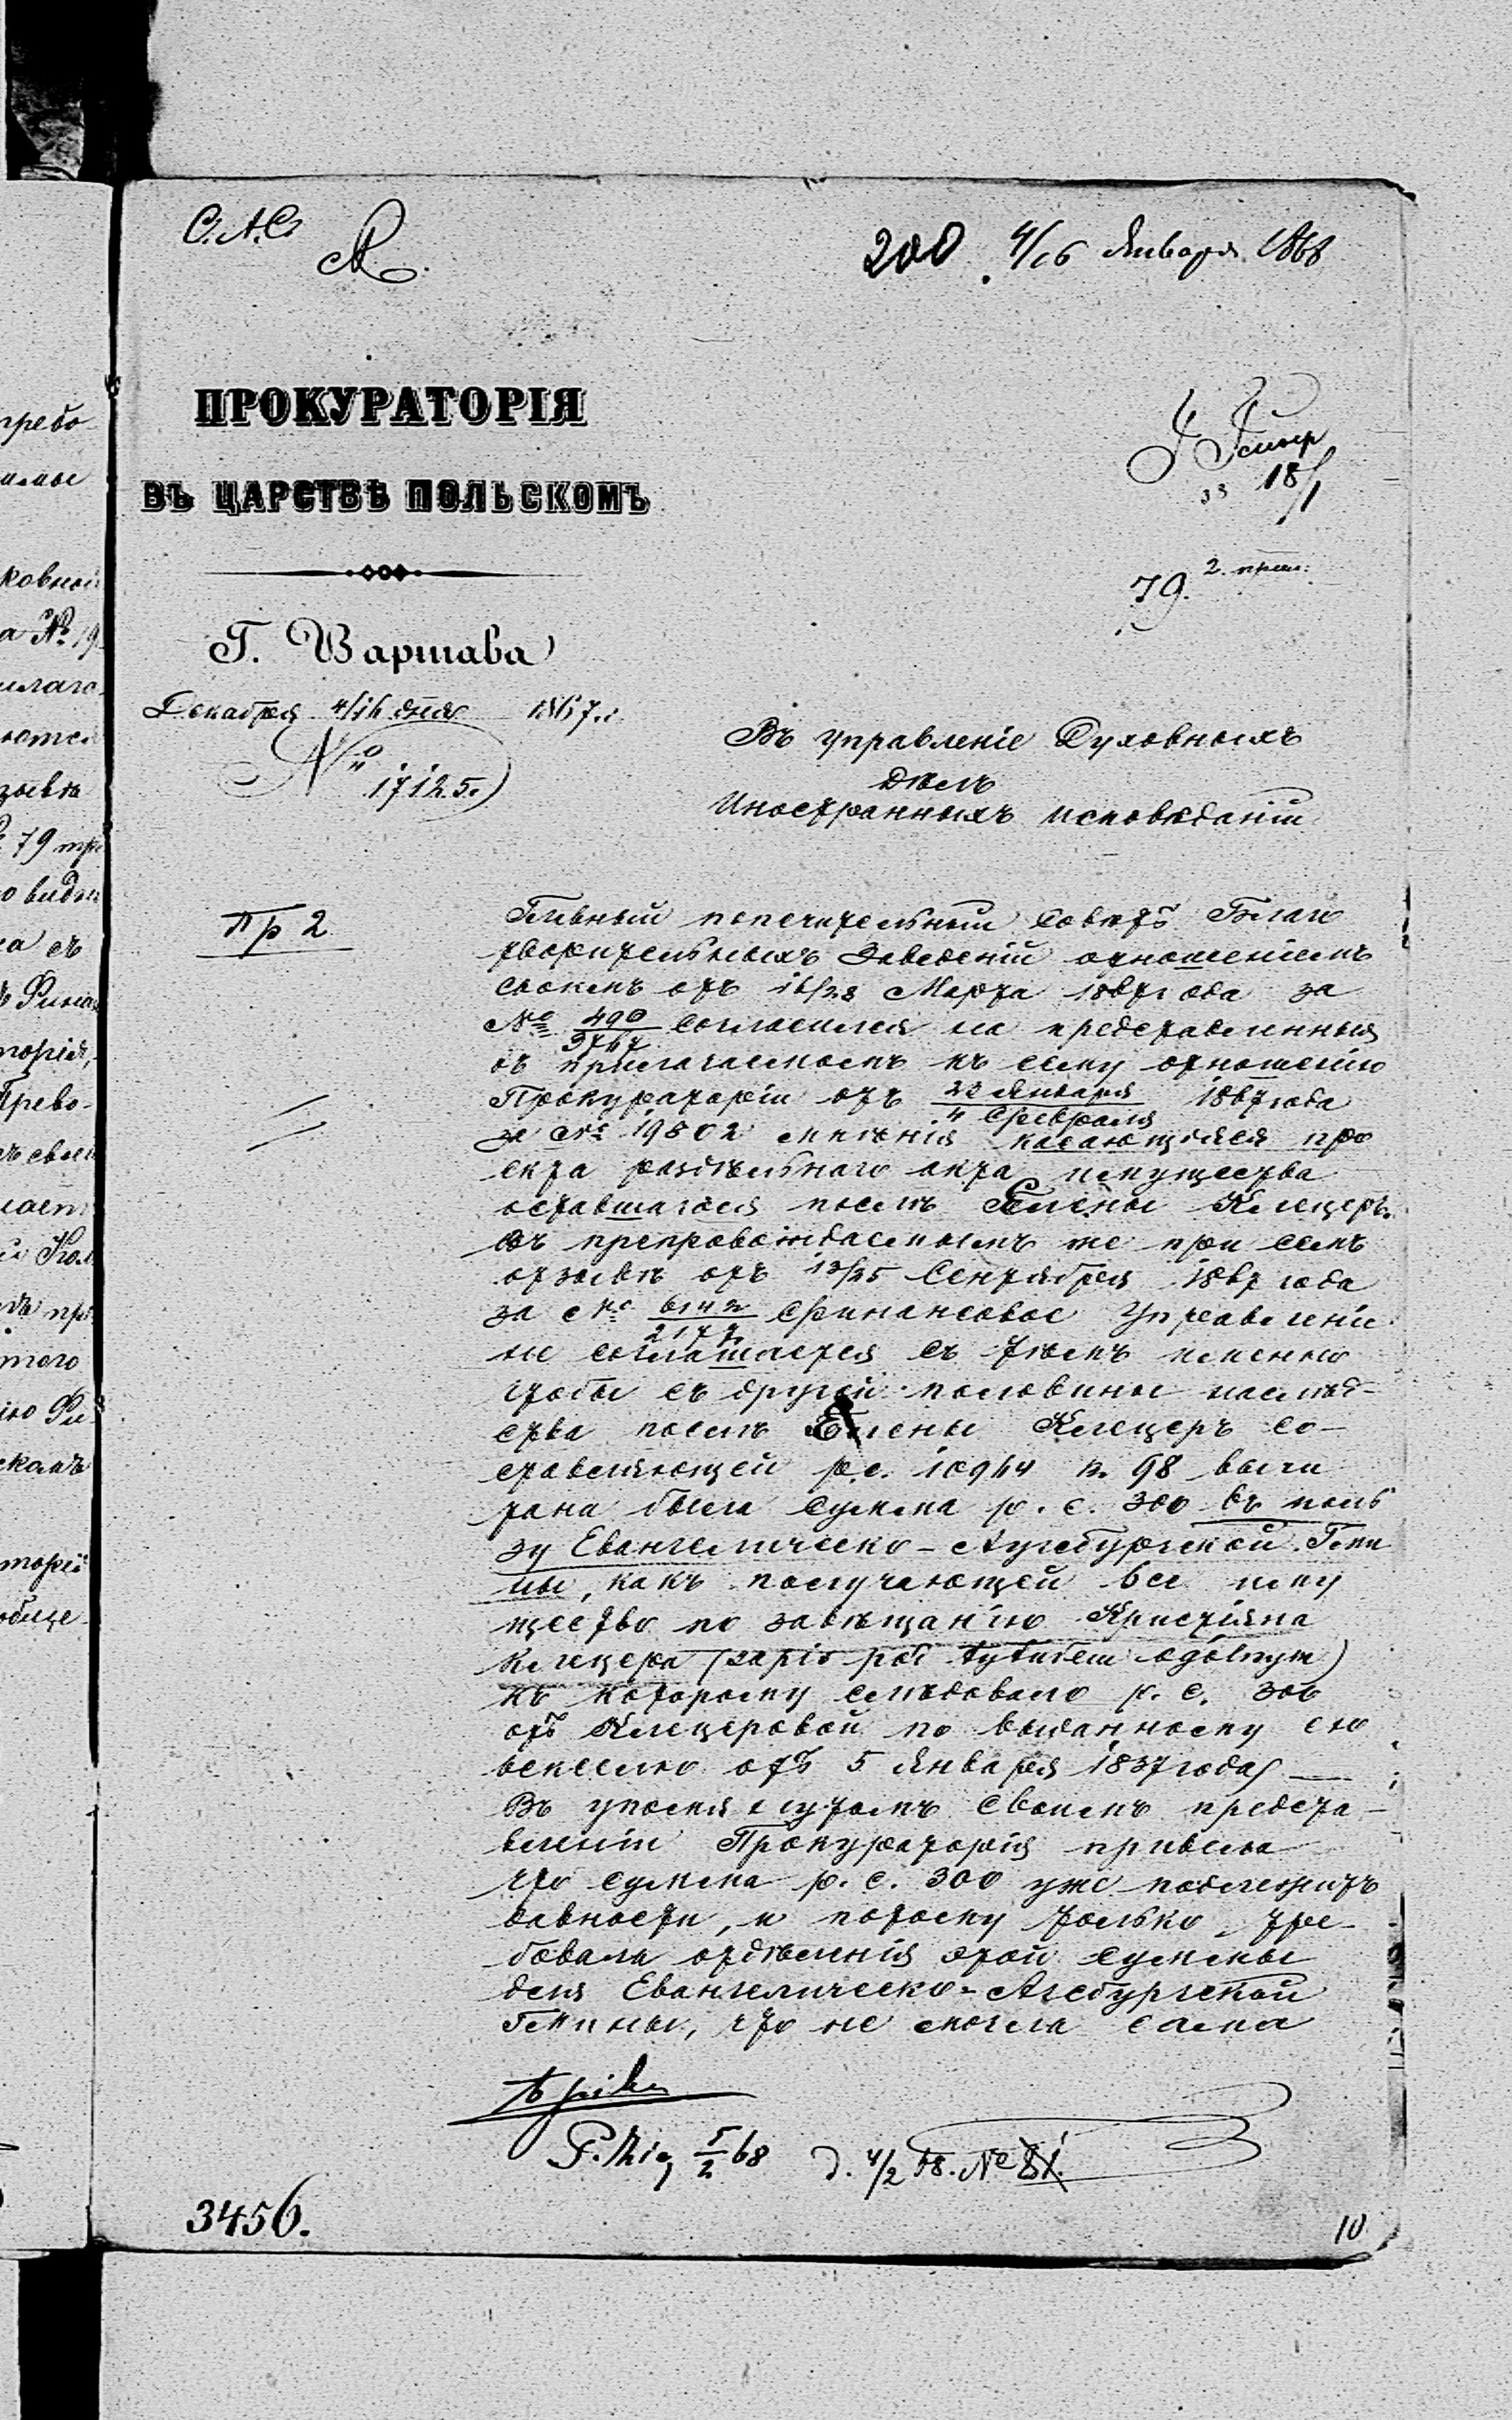 С.А.С.
200 4/16 Января 1868
ПРОКУРАТОРІЯ
ВЪ ЦАРСТВѢ ПОЛЬСКОМЪ
18/1
79. 2. прил:
Г. Варшава
Декабря 4/16 дня 1867 г.
№ 17125.
Въ управленіе Духовныхъ
дѣлъ
Иностранныхъ исповѣданій
Пр 2
Главный попечительный Совѣтъ Благо
творительныхъ Заведеній отношеніемъ
своимъ отъ 16/28 Марта 1867 года за
№ 490/3767 согласился на представленныя
въ прилагаемомъ къ сему отношенію
Прокураторіи отъ 23 Января/4 Февраля 1867 года
за № 19802 мнѣнія касающіяся про
екта раздѣльнаго акта имущества
оставшагося послѣ Елены Клецеръ.
Въ препровождаемомъ же при семъ
отзывѣ отъ 13/25 Сентября 1867 года
за № Финансовое Управленіе
не соглашается съ тѣмъ именно
чтобы съ другой половины наслѣд-
ства послѣ Елены Клецеръ со-
ставляющей р.с. 10944 к. 98 вычи
тана была сумма р. с. 300 въ поль
зу Евангелическо-Аугсбургской Гми
ны, какъ получающей все иму
щество по завѣщанію Кристіяна
Клецера
къ которому слѣдовало р. с. 300
отъ Клецеровой по выданному ею
векселю отъ 5 Января 1837 года) —
Въ упомянутомъ своемъ предста-
вленіи Прокураторія привела
что сумма р. с. 300 уже подлежитъ
давности, и потому только тре-
бовала отдѣленія этой суммы
для Евангелическо-Агсбургской
Гмины, что не могла сама
5/2 68 д. 4/2 68. № 81
3456.
10